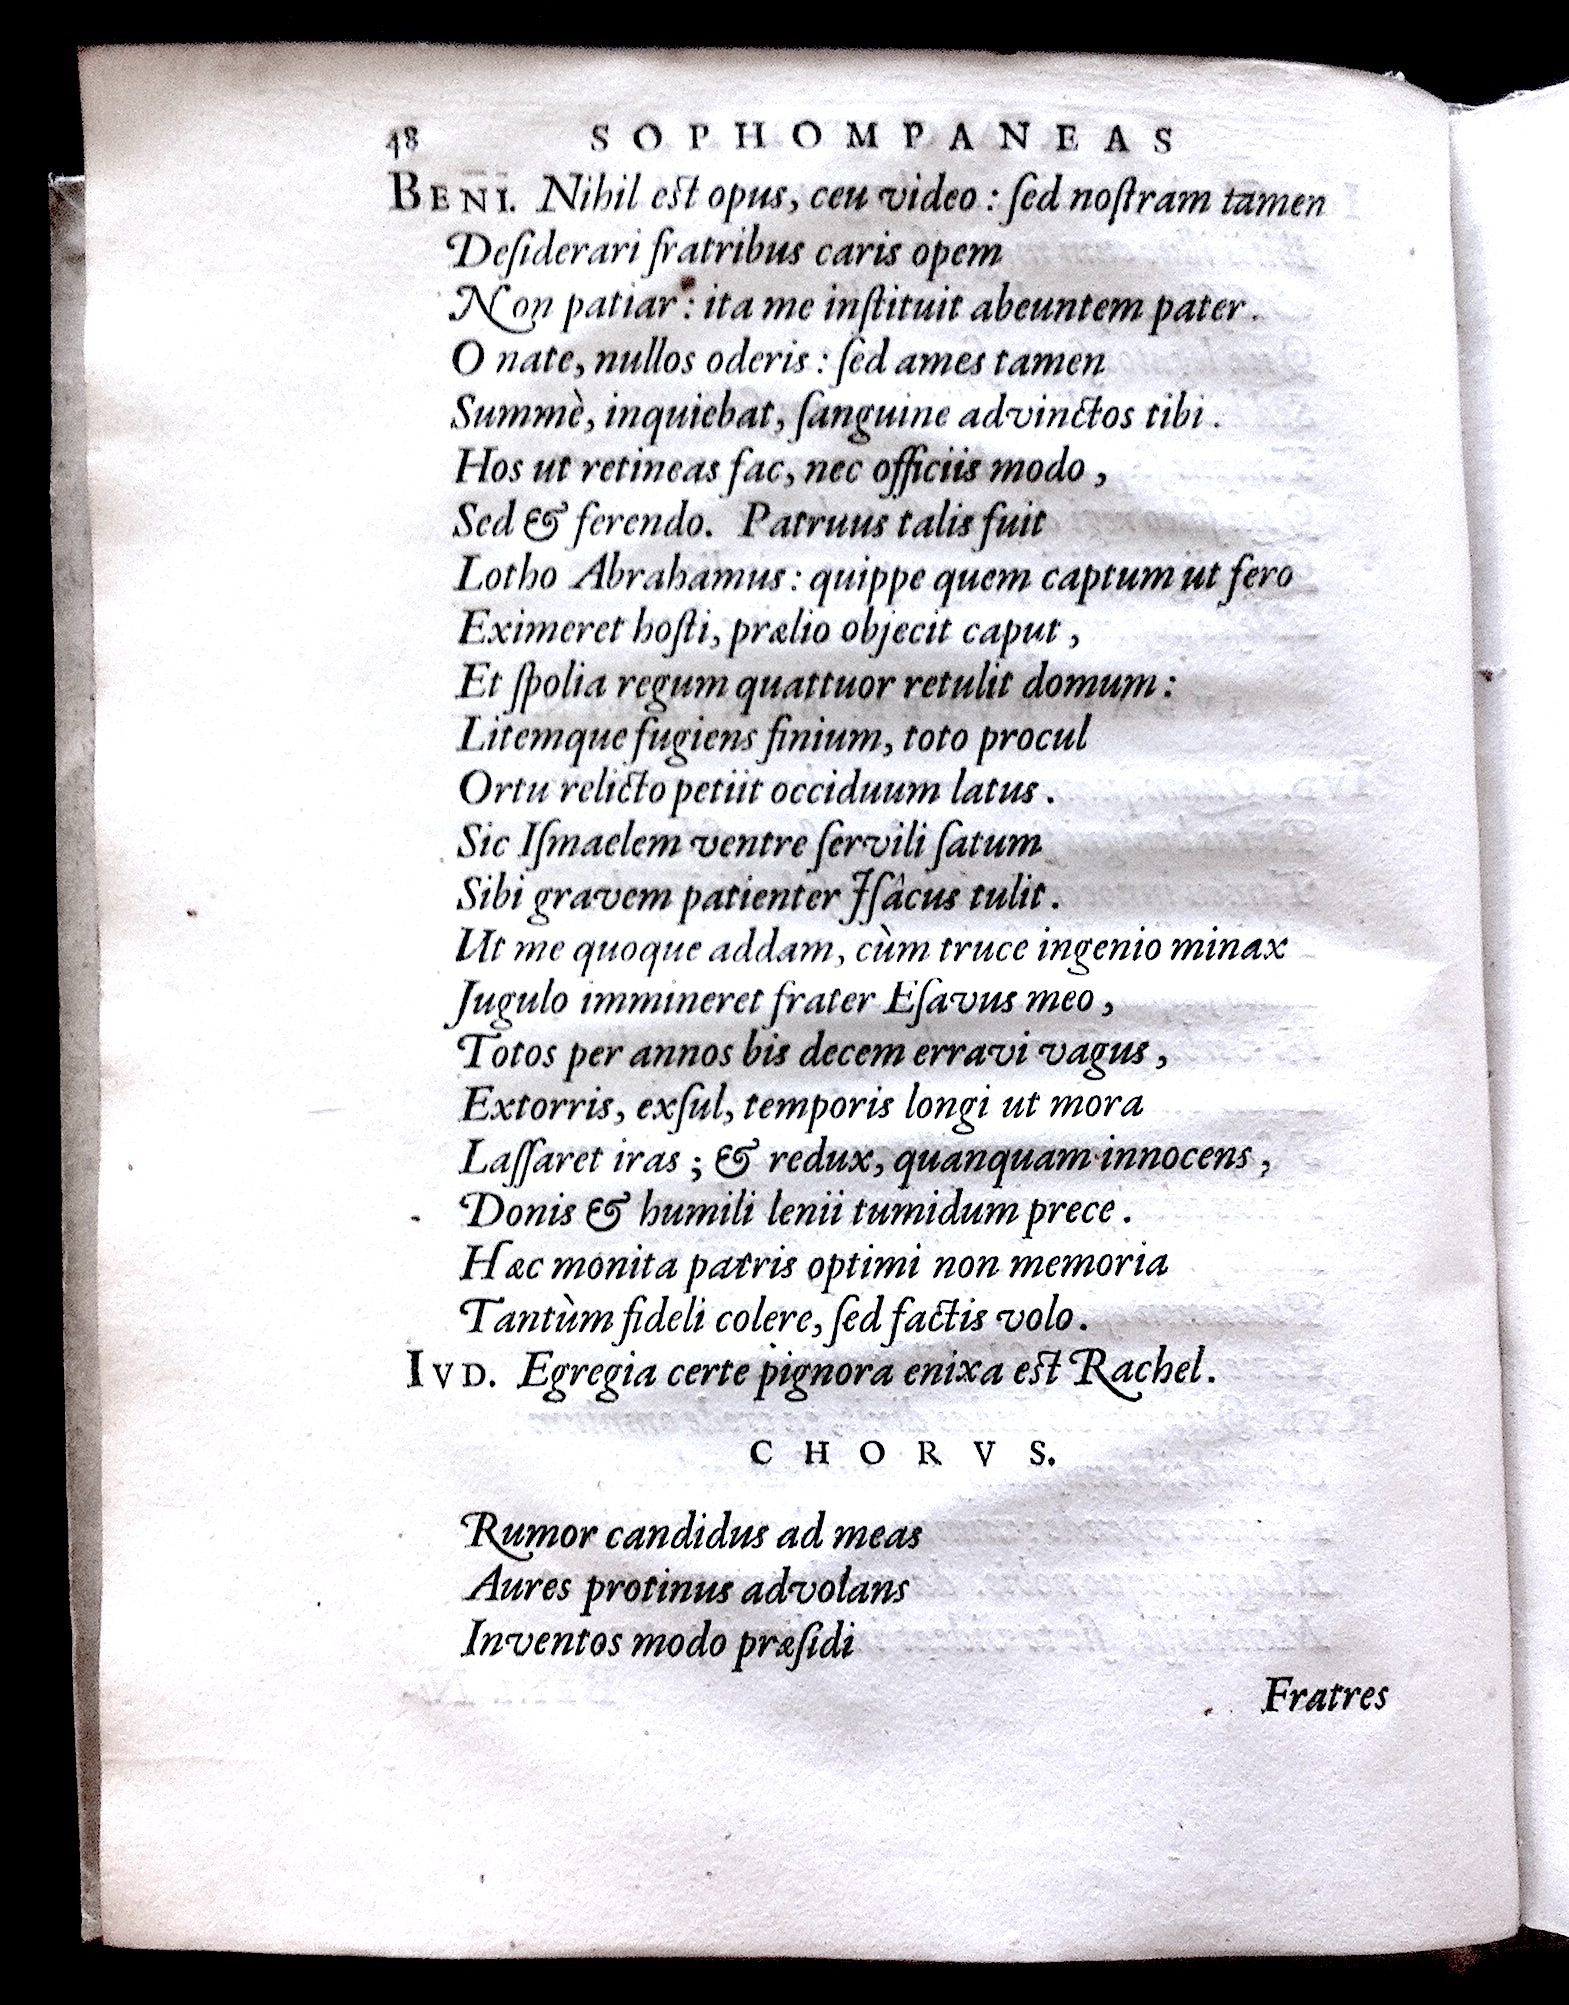 48 SOPHOMPANEAS
BENI. Nihil est opus, ceu video : ſed noſtram tamen
Deſiderari fratribus caris opem
Non patiar : ita me inſtituit abeuntem pater.
O nate, nullos oderis : ſed ames tamen
Summè, inquiebat, ſanguine advinctos tibi.
Hos ut retineas fac, nec officiis modo,
Sed & ferendo. Patruus talis fuit
Lotho Abrahamus : quippe quem captum ut fero
Eximeret hoſti, prælio objecit caput,
Et ſpolia regum quattuor retulit domum :
Litemque fugiens finium, toto procul
Ortu relicto petiit occiduum latus.
Sic Iſmaelem ventre ſervili ſatum
Sibi gravem patienter Iſâcus tulit.
Ut me quoque addam, cùm truce ingenio minax
Jugulo immineret frater Eſavus meo,
Totos per annos bis decem erravi vagus,
Extorris, exſul, temporis longi ut mora
Laſſaret iras ; & redux, quanquam innocens,
Donis & humili lenii tumidum prece.
Hæc monita patris optimi non memoria
Tantùm fideli colere, ſed factis volo.
IVD. Egregia certe pignora enixa est Rachel.
CHORVS.
Rumor candidus ad meas
Aures protinus advolans
Inventos modo præſidi
Fratres